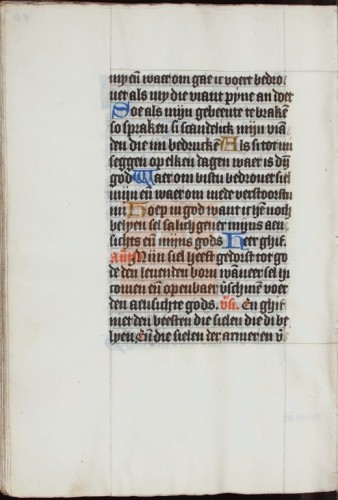 my en̄ waer om gae ic voert bedro
uet als my die viant pyne an doet
Soe als mijn gebeente te brakē
so spraken si scandelick mijn viā
den die mi bedructē Als si tot mi
seggen op elken dagen waer is dȳ
god Waer om bistu bedrouet siel
mijn en̄ waer om mede verstoerstu
mi Hoep in god want ic hē noch
belyen sel salich geuer mijns aen
sichts en̄ mijns gods Heer ghif.
Mijn siel heeft gedorst tot go
de den leuenden born wāneer sel ic
comen en̄ openbaer v̄schinen voer
den aensichte gods. v̄s. En ghif
niet den beesten die sielen die di be
lyen En̄ die sielen der armer en v̄